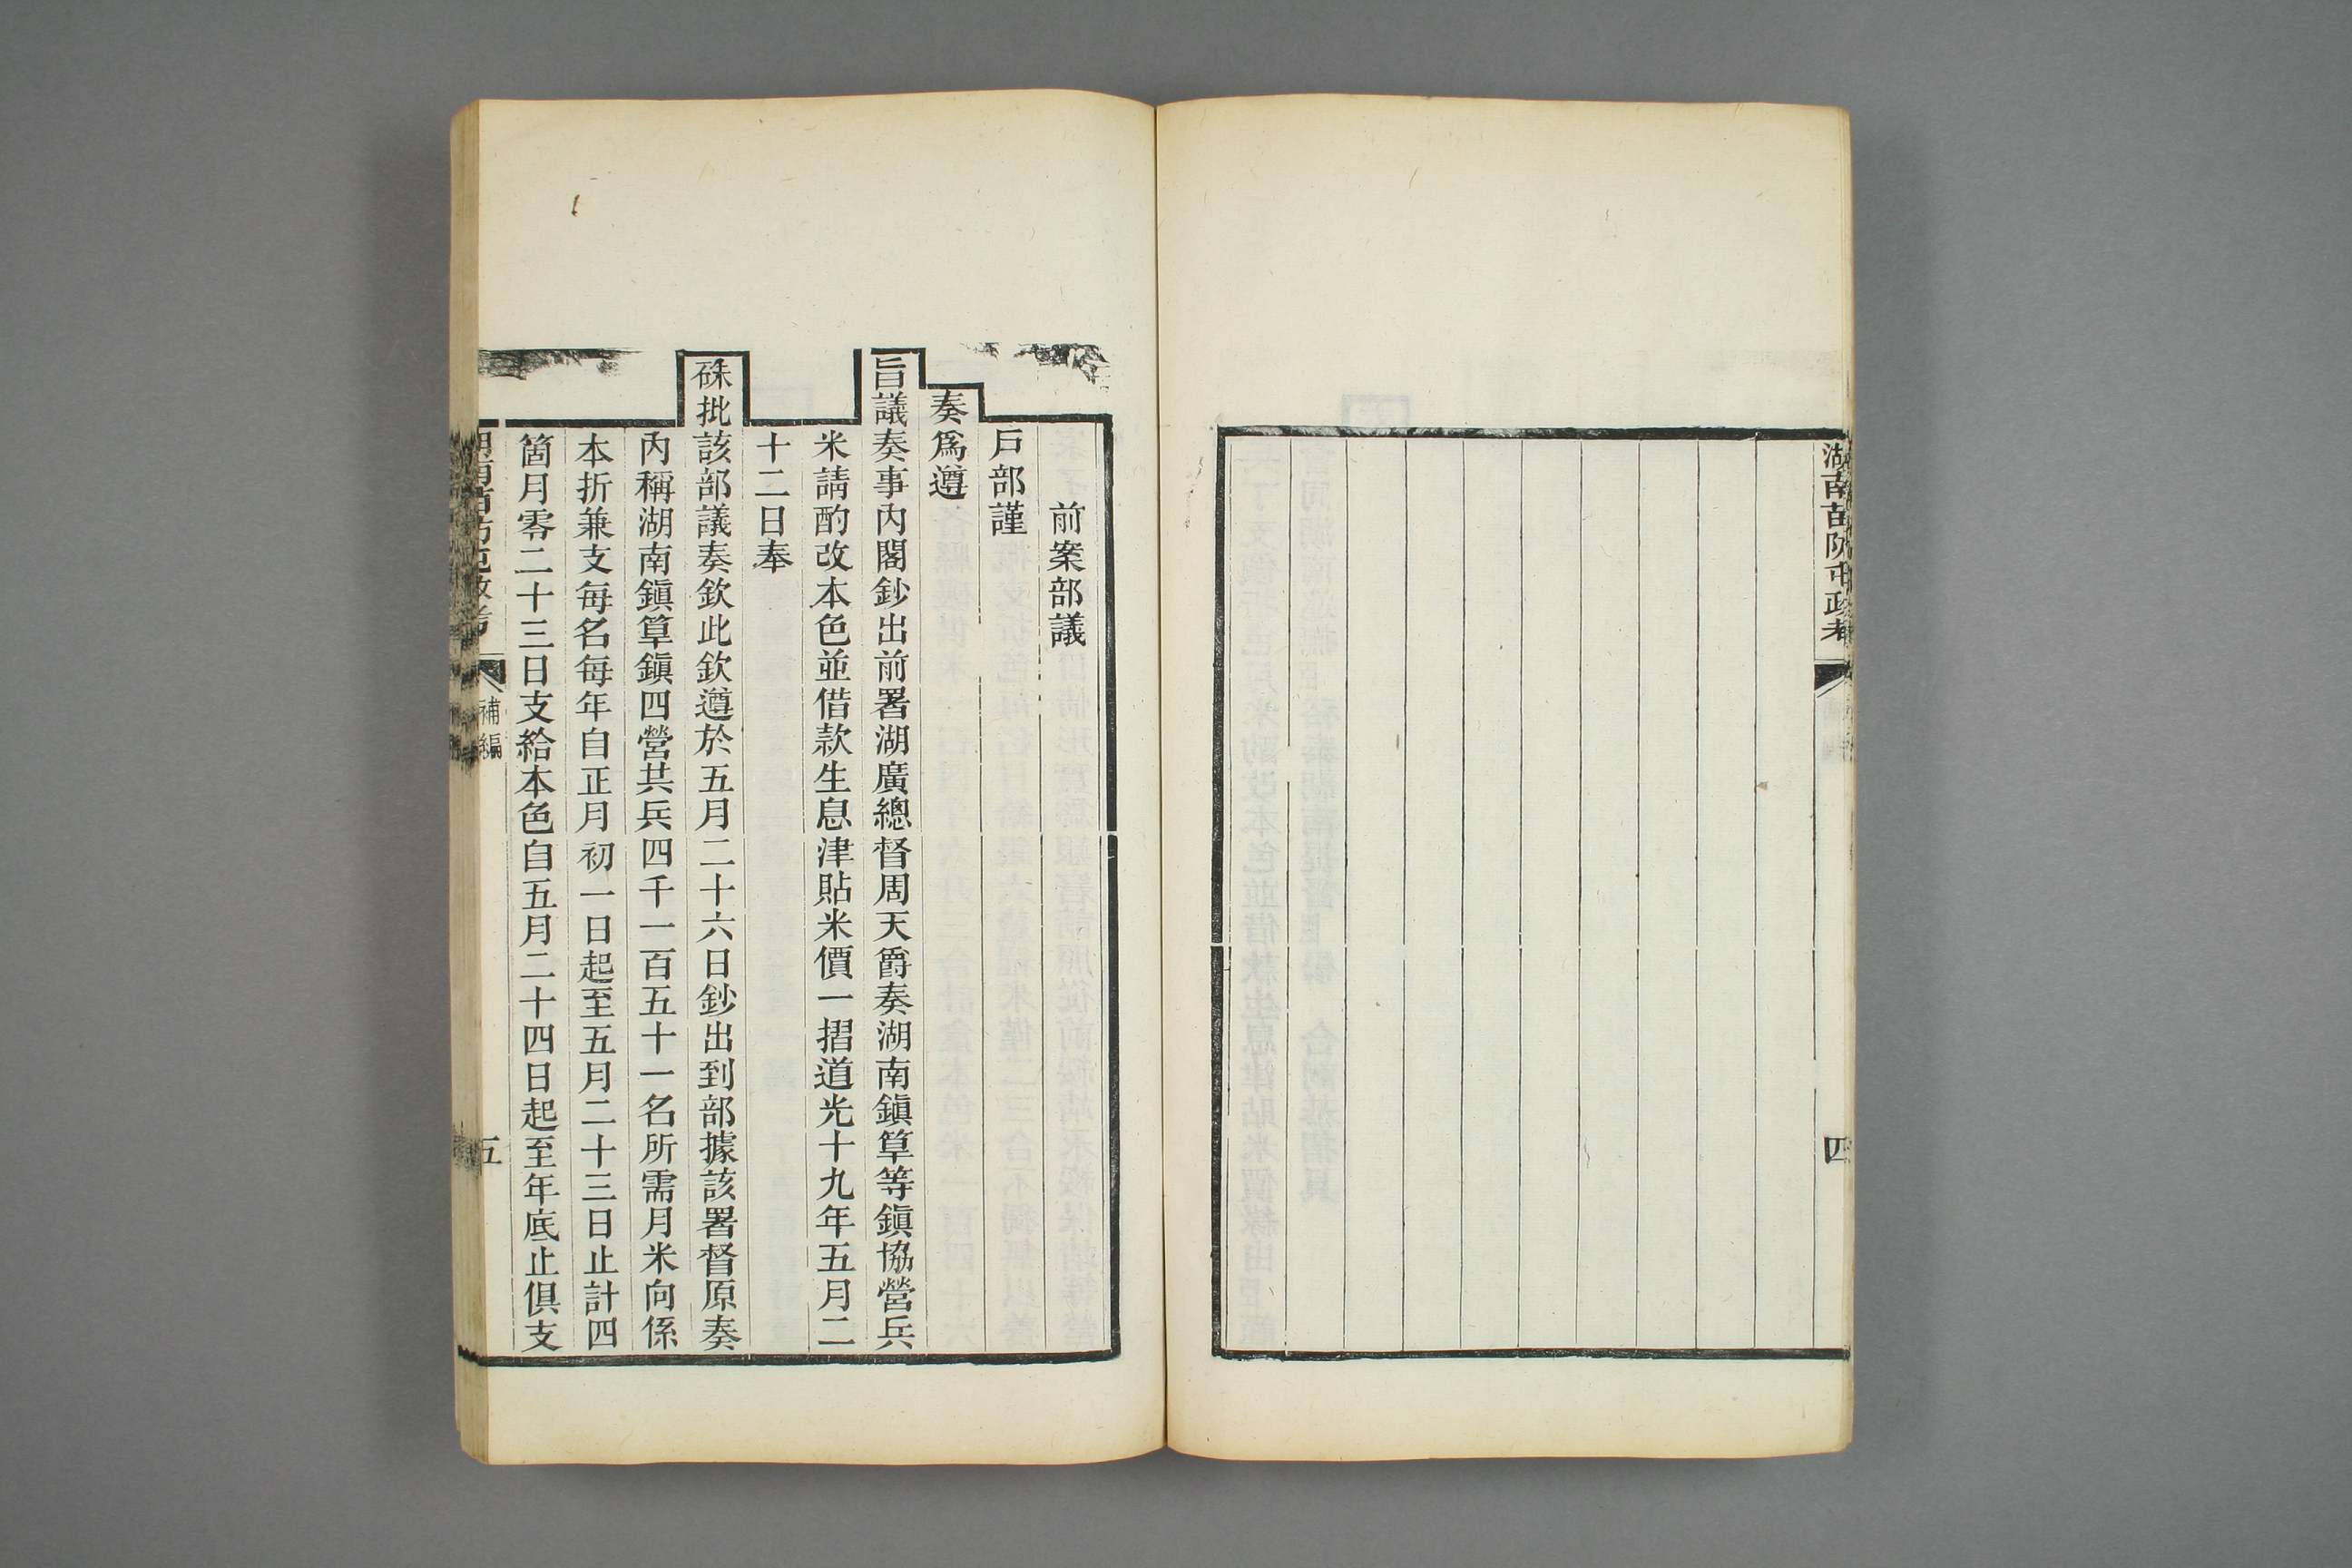 湖南苗防屯政考
四
前案部議
戶部謹
奏爲遵
旨議奏事內閣鈔出前署湖廣總督周天爵奏湖南鎭筸等鎭協營兵
米請酌改本色並借款生息津貼米價一摺道光十九年五月二
十二日奉
硃批該部議奏欽此欽遵於五月二十六日鈔出到部據該署督原奏
內稱湖南鎭筸鎭四營共兵四千一百五十一名所需月米向係
本折兼支每名每年自正月初一日起至五月二十三日止計四
箇月零二十三日支給本色自五月二十四日起至年底止俱支
湖南苗防屯政考
補編
五